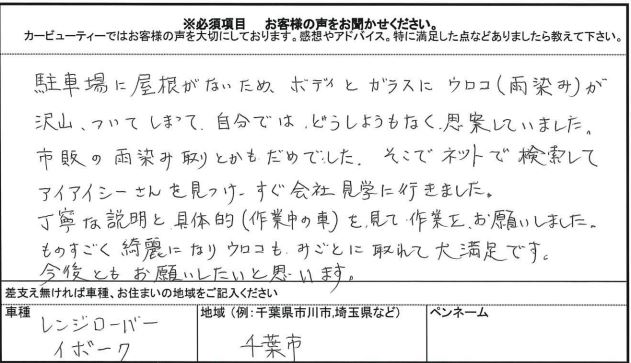 ※必須項目　お客様の声をお聞かせください。
カービューティーではお客様の声を大切にしております。感想やアドバイス。特に満足した点などありましたら教えて下さい。
駐車場に屋根がないため、ボディとガラスにウロコ(雨染み)が
沢山、ついてしまって、自分では、どうしようもなく、思案していました。
市販の雨染み取りとかもだめでした。そこでネットで検索して
アイアイシーさんを見つけ、すぐ会社見学に行きました。
丁寧な説明と具体的(作業中の車)を見て作業を、お願いしました。
ものすごく綺麗になりウロコも、みごとに取れて大満足です。
今後ともお願いしたいと思います。
差支え無ければ車種、お住まいの地域をご記入ください
車種
レンジローバー
イボーク
地域（例:千葉県市川市,埼玉県など）
千葉市
ペンネーム